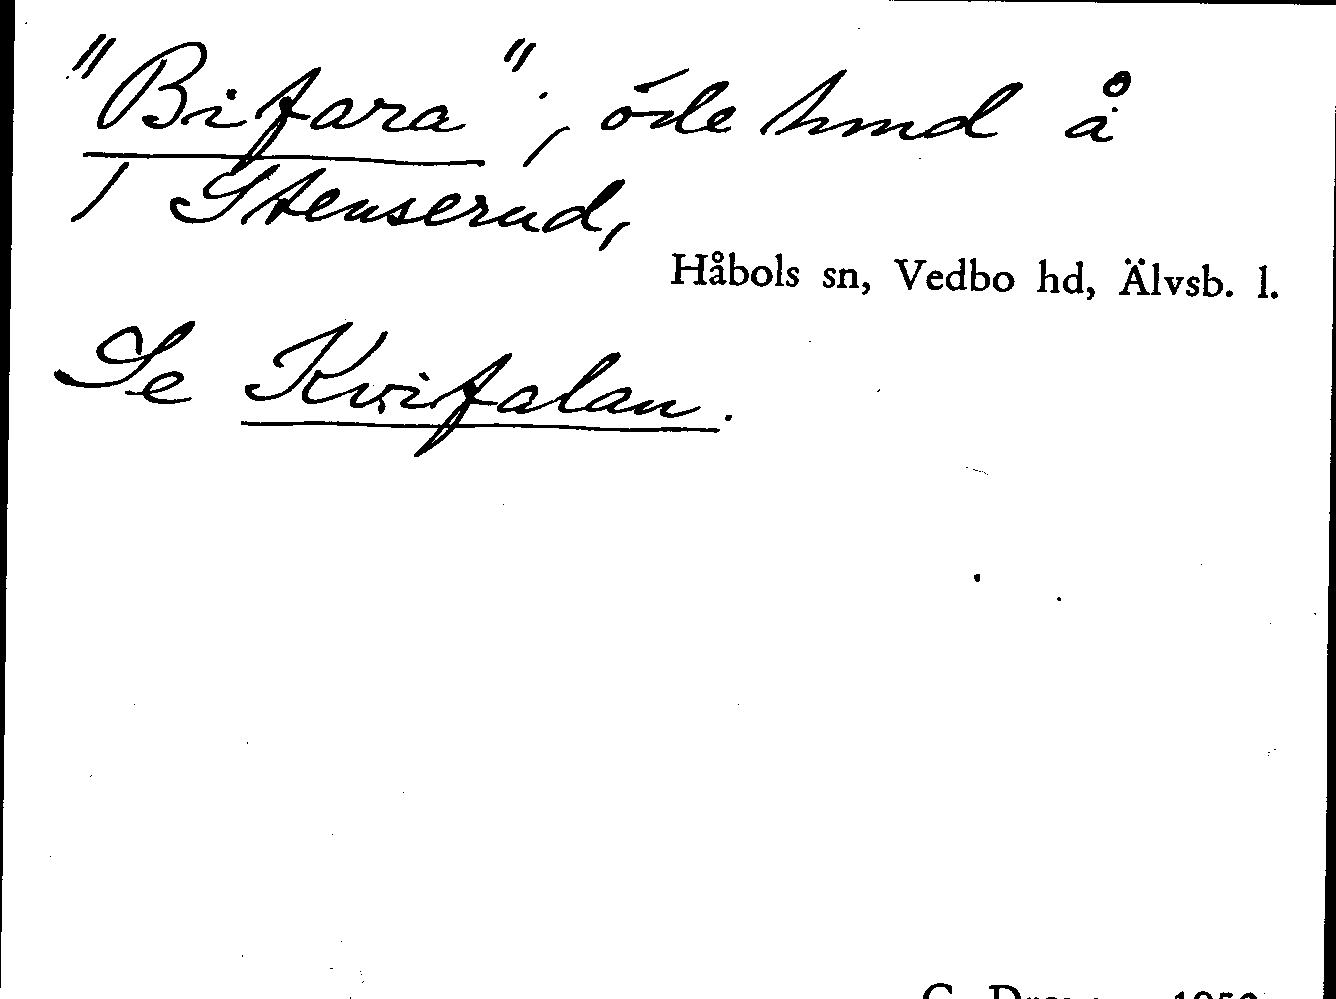 "Bifara"; öde hmd å
1 Stenserud,
Håbols sn, Vedbo hd, Älvsb. l.
Se Kvifalan.